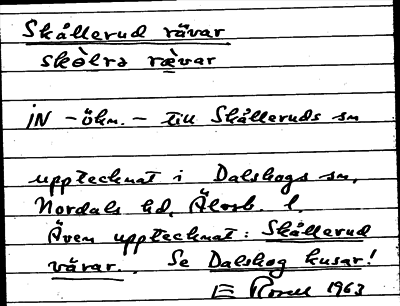 Skållerud rävar
skòlrə rævar
IN - ökn. - till Skålleruds sn
upptecknat i Dalskogs sn,
Nordals hd, Älvsb. l.
Även upptecknat: Skållerud
värar. Se Dalskog kusar!
1963